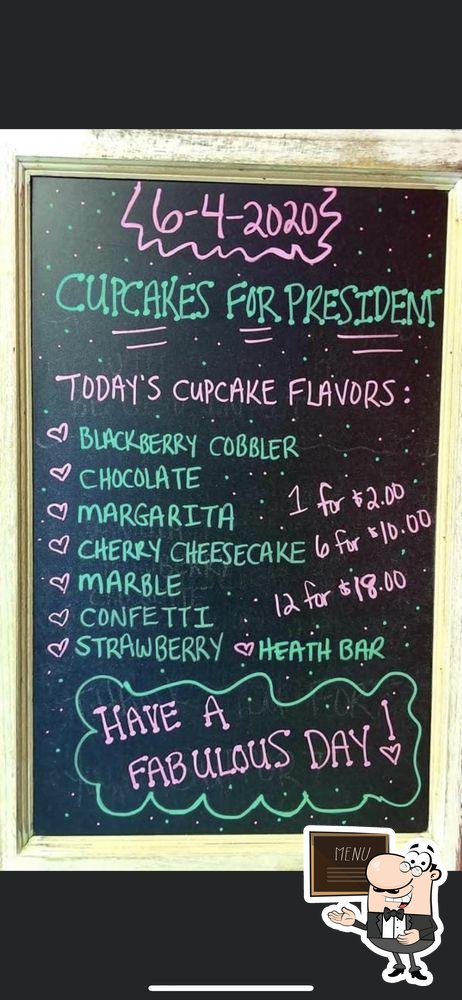 6-4-2020
CUPCAKES FOR PRESIDENT
TODAY'S CUPCAKE FLAVORS:
BLACKBERRY COBBLER
CHOCOLATE
MARGARITA
1 for $2.00
CHERRY CHEESECAKE
6 for $10.00
MARBLE
12 for $18.00
CONFETTI
STRAWBERRY
HEATH BAR
HAVE A
FABULOUS DAY!
MENU